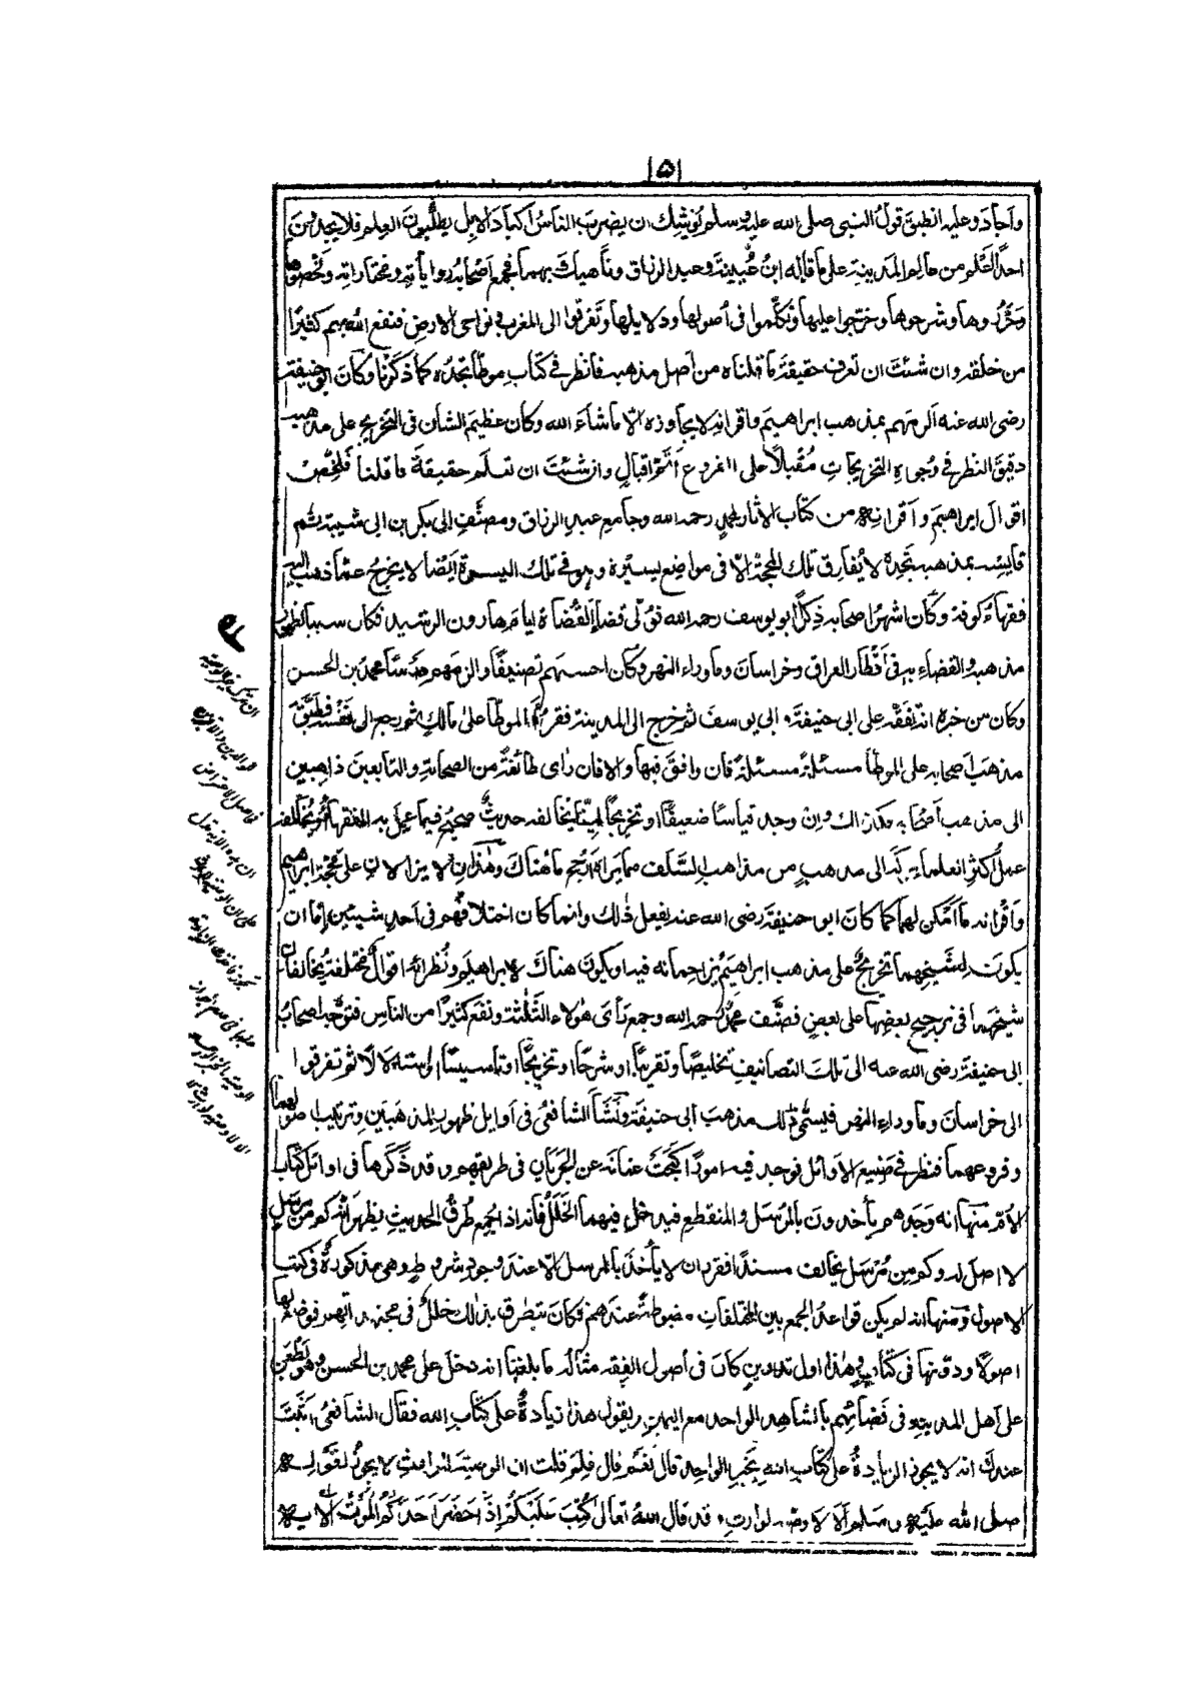 ١٥١
واجاد وعليه انطبق قول النبى صلى الله عليه وسلم يوشك ان يضرب الناس اكباد الابل يطلبون العلم فلا يجدون
احدا اعلم من عالم المدينة على ما قاله ابن عيينة وعبد الرزاق وناهيك بهما فجمع اصحابه رواياته ومختاراته ولخصوها
وحرروها وشرحوها وخرجوا عليها وتكلموا فى اصولها ودلايلها وتفرقوا الى المغرب ونواحى الارض فنفع الله بهم كثيرا
من خلقه وان شئت ان تعرف حقيقة ما قلناه من اصل مذهبه فانظر فى كتاب موطا تجده كما ذكرنا وكان ابو حنيفة
رضى الله عنه الزمهم بمذهب ابراهيم واقرانه لا يجاوزه الا ما شاء الله وكان عظيم الشان فى التخريج على مذهبه
دقيق النظر فى وجوه التخريجات مقبلا على الفروع اتم اقبال وان شئت ان تعلم حقيقة ما قلنا فلخص
اقوال ابراهيم واقرانه من كتاب الاثار لمحمد رحمه الله وجامع عبد الرزاق ومصنف ابى بكر بن ابى شيبة ثم
قايسه بمذهبه تجده لا يفارق تلك المحجة الا فى مواضع يسيرة وهو فى تلك اليسيرة ايضا لا يخرج عما ذهب اليه
فقهاء كوفة وكان اشهر اصحابه ذكرا ابو يوسف رحمه الله تولى قضاء القضاة ايام هارون الرشيد فكان سببا لظهور
مذهبه والقضاء به فى اقطار العراق وخراسان وما وراء النهر وكان احسنهم تصنيفا والزمهم درسا محمد بن الحسن
وكان من خبره انه تفقه على ابى حنيفة وابى يوسف ثم خرج الى المدينة فقرء الموطا على مالك ثم رجع الى نفسه فطبق
مذهب اصحابه على الموطا مسئلة مسئلة فان وافق فبها والا فان راى طائفة من الصحابة والتابعين ذاهبين
الى مذهب اصحابه فكذلك وان وجد قياسا ضعيفا او تخريجا لينا يخالفه حديث صحيح فيما عمل به الفقهاء او يخالفه
عمل اكثر العلماء تركه الى مذهب من مذاهب السلف مما يراه ارجح ما هناك وهذان لا يزالان على محجة ابراهيم
واقرانه ما امكن لهما كما كان ابو حنيفة رضى الله عنه يفعل ذلك وانما كان اختلافهم فى احد شيئين اما ان
يكون لشيخهما تخريج على مذهب ابراهيم يزاحمانه فيه او يكون هناك لابراهيم ونظرائه اقوال مختلفة يخالفان
شيخهما فى ترجيح بعضها على بعض فصنف محمد رحمه الله وجمع راى هؤلاء الثلثة ونفع كثيرا من الناس فتوجه اصحاب
ابى حنيفة رضى الله عنه الى تلك التصانيف تخليصا وتقريبا او شرحا او تخريجا او تاسيسا او استدلالا ثم تفرقوا
الى خراسان وما وراء النهر فيسمى ذلك مذهب ابى حنيفة ونشأ الشافعى فى اوايل ظهور المذهبين وترتيب اصولهما
وفروعهما فنظر فى صنيع الاوائل فوجد فيه امورا كبحت عنانه عن الجريان فى طريقهم وقد ذكرها فى اوائل كتاب
الام منها انه وجدهم يأخذون بالمرسل والمنقطع فيدخل فيهما الخلل فانه اذا جمع طرق الحديث يظهر انه كم من مرسل
لا اصل له وكم من مرسل يخالف مسندا فقرر ان لا يأخذ بالمرسل الا عند وجود شروط وهى مذكورة فى كتب
الاصول ومنها انه لم يكن قواعد الجمع بين المختلفات مضبوطة عندهم فكان يتطرق بذلك خلل فى مجتهداتهم فوضع لها
اصولا ودونها فى كتاب وهذا اول تدوين كان فى اصول الفقه مثاله ما بلغنا انه دخل على محمد بن الحسن وهو يطعن
على اهل المدينة فى قضائهم بالشاهد الواحد مع اليمين ويقول هذا زيادة على كتاب الله فقال الشافعى اثبت
عندك انه لا يجوز الزيادة على كتاب الله بخبر الواحد قال نعم قال فلم قلت ان الوصية للوارث لا يجوز لقوله
صلى الله عليه وسلم الا لا وصية لوارث وقد قال الله تعالى كتب عليكم اذا حضر احدكم الموت الآية